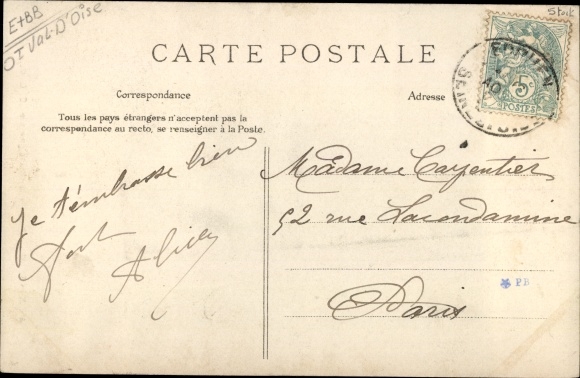 E+BB
OI Val-D'Oise
Stock
CARTE POSTALE
Correspondance
Adresse
Tous les pays étrangers n'acceptent pas la
correspondance au recto, se renseigner à la Poste.
5c
POSTES
Je t'embrasse bien
fort
Madame Carpentier
52 rue Lacondamine
Paris
PB